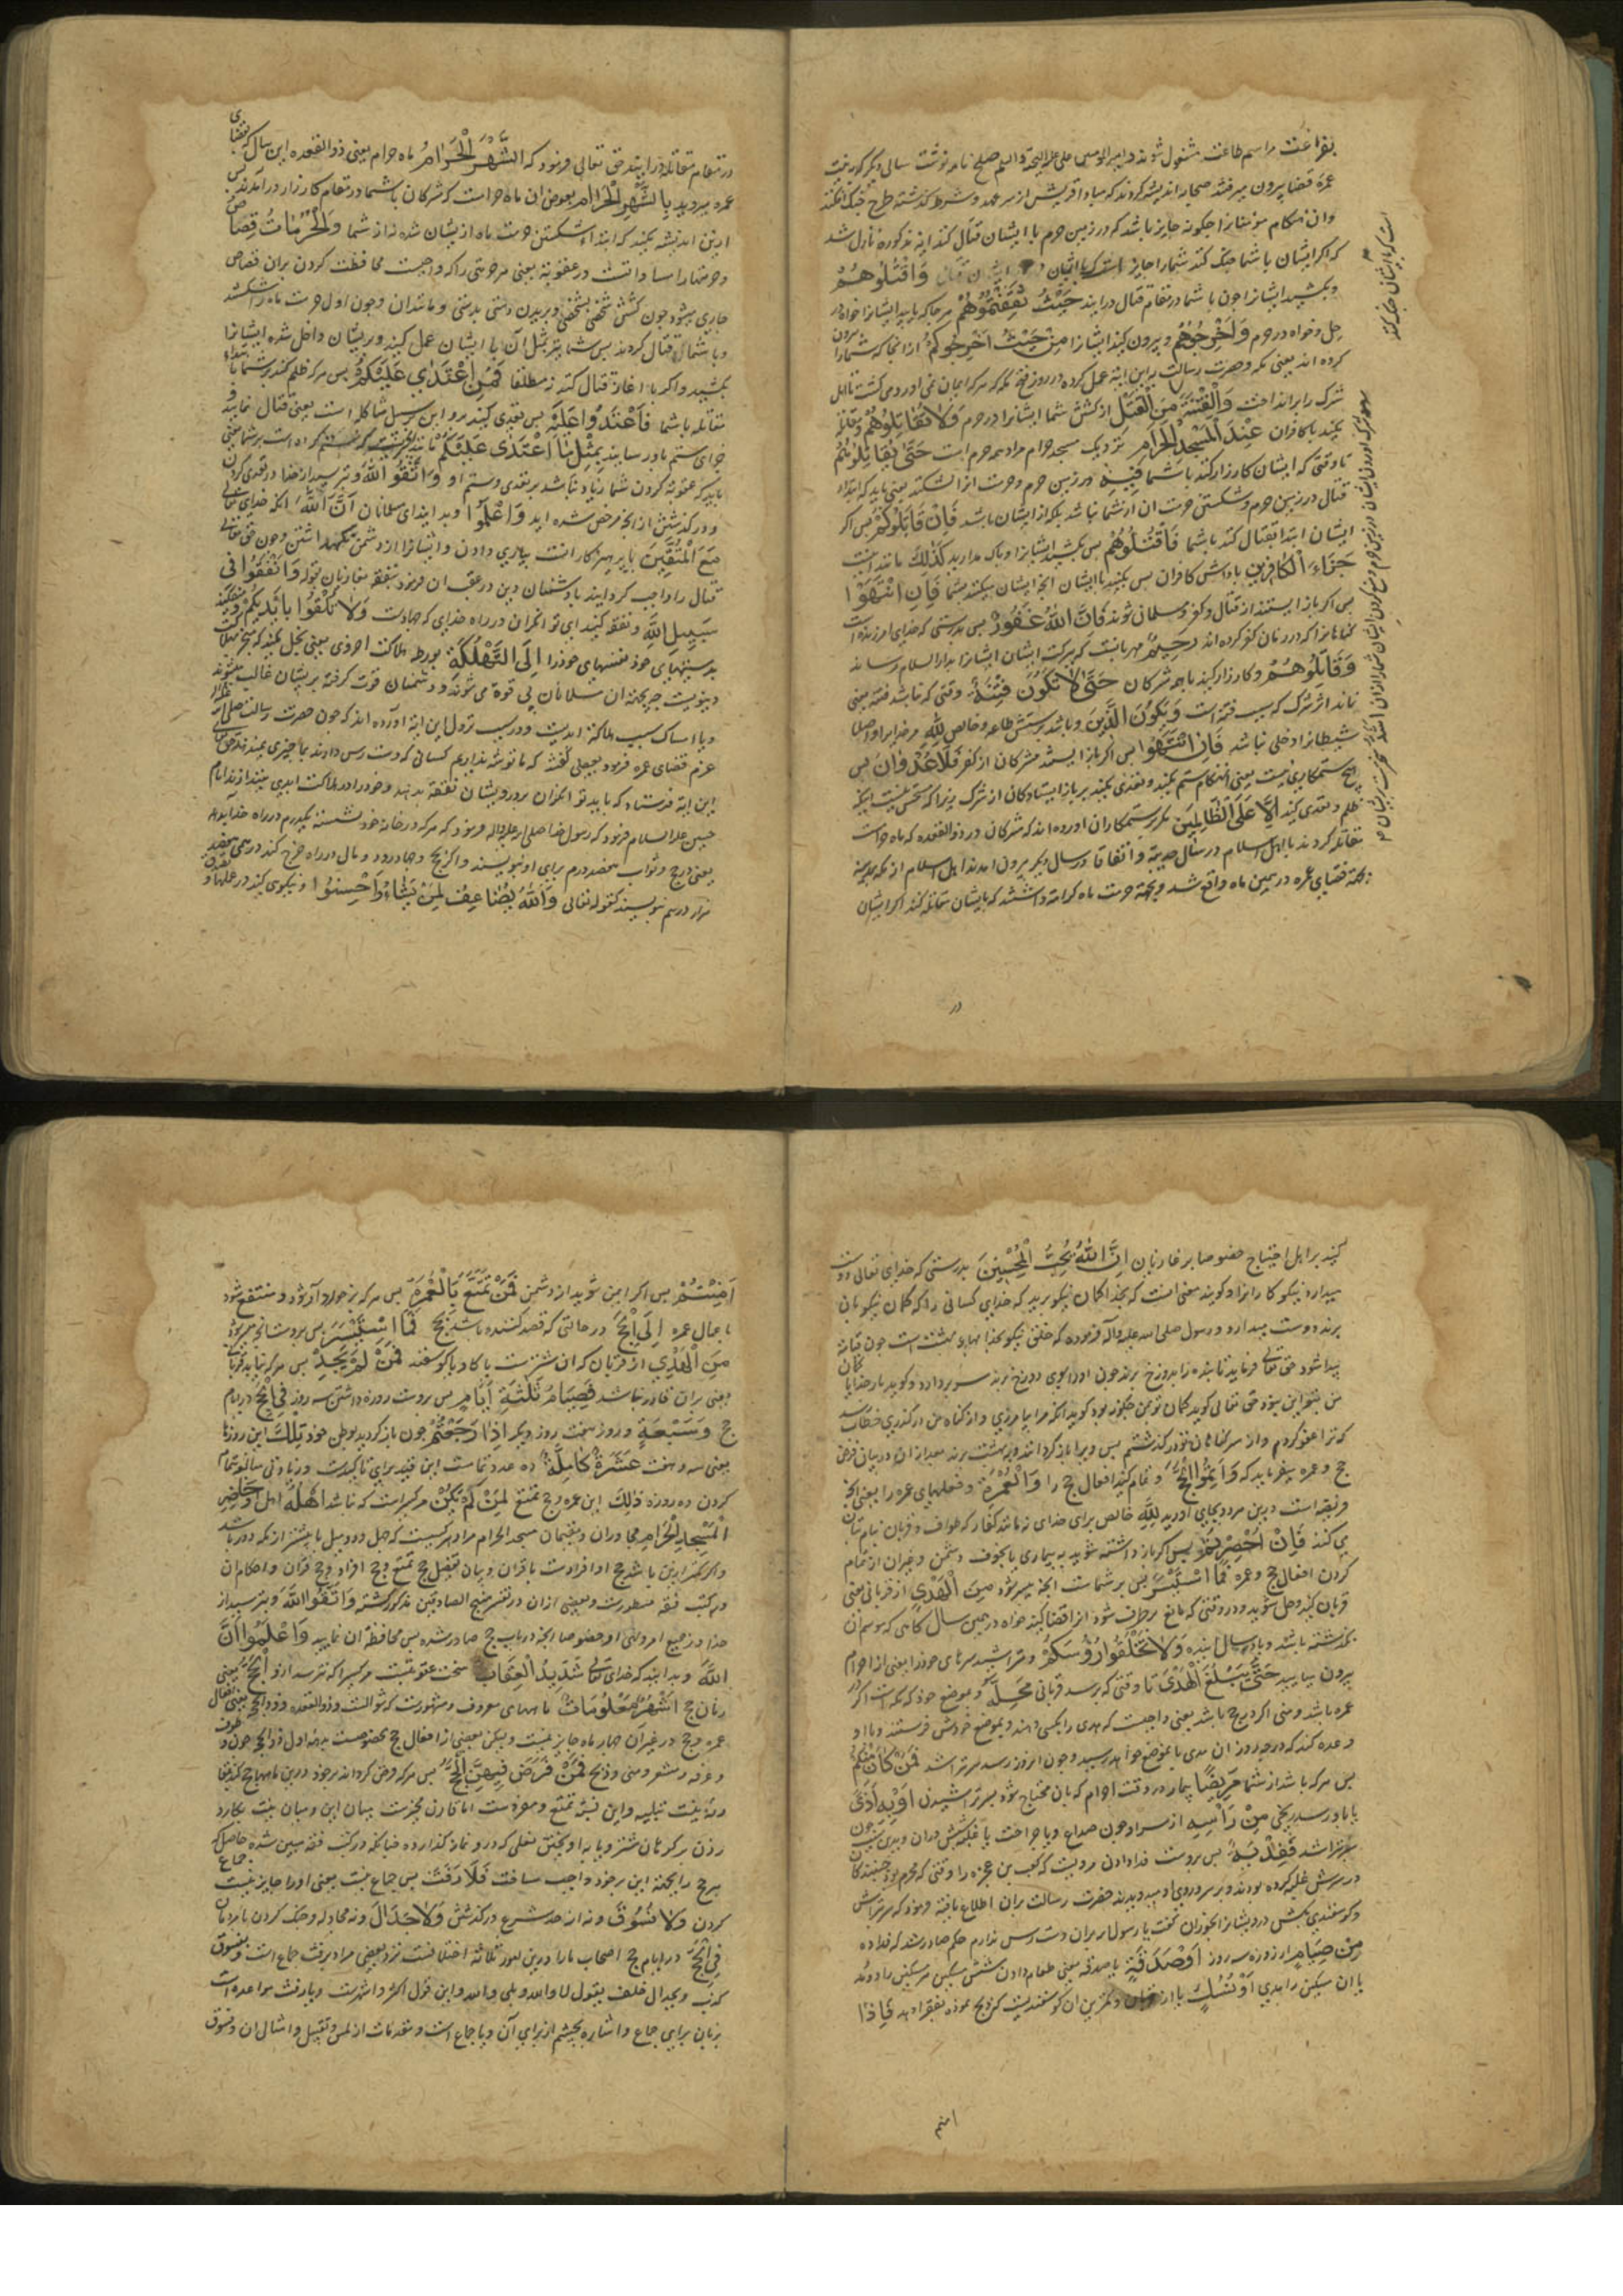 بفراغت مراسم طاعت مشغول شوند و امیر المومنین علی علیه التحیة و السلم صلح نامه نوشت سالی دیکر که وقت
عمره قضا بیرون میرفتند صحابه اندیشه کردند که مبادا قریش از سر عهد و شرط کذشته طرح جنک افکنند
و ان هنکام مؤمنانرا چکونه جایز باشد که در زمین حرم با ایشان قتال کنند ایه مذکوره نازل شد
که اکر ایشان با شما جنک کنند شما را جایز است که با ایشان قتال وَاقْتُلُوهُمْ
و بکشید ایشانرا چون با شما در مقام قتال درایند حَيْثُ ثَقِفْتُمُوهُمْ هر جا که بیابید ایشانرا خواه در
حل و خواه در حرم وَاَخْرِجُوهُمْ و بیرون کنید ایشانرا مِنْ حَيْثُ اَخْرَجُوكُمْ از انجا که شما را بیرون
کرده اند یعنی مکه و حضرت رسالت براین ایة عمل کرده در روز فتح مکه هر که ایمان نمی اورد می کشت تا اهل
شرک را برانداخت وَالْفِتْنَةُ اَشَدُّ مِنَ الْقَتْلِ از کشتن شما ایشانرا در حرم وَلَا تُقَاتِلُوهُمْ و مقاتله
مکنید با کافران عِنْدَ الْمَسْجِدِ الْحَرَامِ نزدیک مسجد حرام مراد همه حرم است حَتَّى يُقَاتِلُوكُمْ
تا وقتی که ایشان کارزار کنند با شما فِيهِ در زمین حرم و حرمت انرا بشکنند یعنی باید که ابتداء
قتال در زمین حرم و شکستن حرمت ان از شما نباشد بلکه از ایشان باشد فَاِنْ قَاتَلُوكُمْ پس اکر
ایشان ابتدا بقتال کنند با شما فَاقْتُلُوهُمْ پس بکشید ایشانرا و باک مدارید كَذٰلِكَ مانند اینست
جَزَاءُ الْكَافِرِينَ پاداش کافران پس بکنید با ایشان انچه ایشان میکنند بشما فَاِنِ انْتَهَوْا
پس اکر باز ایستند از قتال و کفر و مسلمان شوند فَاِنَّ اللّٰهَ غَفُورٌ پس بدرستی که خدای امرزنده است
کناهانرا که در زمان کفر کرده اند رَحِيمٌ مهربانست که ببرکت ایشان ایشانرا بدار السلام رساند
وَقَاتِلُوهُمْ و کارزار کنید با مشرکان حَتَّى لَا تَكُونَ فِتْنَةٌ وقتی که نباشد فتنه یعنی
نماند اثر شرک که سبب فتنه است وَيَكُونَ الدِّينُ و باشد پرستش ظاهر و خالص لِلّٰهِ مر خدایرا و اصلا
شیطانرا دخلی نباشد فَاِنِ انْتَهَوْا پس اکر باز ایستند مشرکان از کفر فَلَا عُدْوَانَ پس
هیچ ستمکاری نیست یعنی انتقام ستم مکنید و تعدی مکنید بر باز ایستادکان از شرک زیرا که مستحق نیست انکه
بظلم و تعدی کنید اِلَّا عَلَى الظَّالِمِينَ مکر بر ستمکاران اورده اند که مشرکان در ذو القعده که ماه حرام است
مقاتله کردند با اهل اسلام در سال حدیبیه و اتفاقا در سال دیکر بیرون امدند اهل اسلام از مدینه
بجهة قضای عمره در همین ماه واقع شد و بجهة حرمت ماه کراهت داشتند که با ایشان مقاتله کنند اکر ایشان
در
در مقام مقاتله درایند حق تعالی فرمود که اَلشَّهْرُ الْحَرَامُ ماه حرام یعنی ذو القعده این سال که بقضای
عمره میروید بِالشَّهْرِ الْحَرَامِ بعوض ان ماه حرامست که مشرکان با شما در مقام کارزار درامدند پس
از این اندیشه مکنید که ابتداء شکستن حرمت ماه از ایشان شده نه از شما وَالْحُرُمَاتُ قِصَاصٌ
و حرمتها را مساواتست در عقوبة یعنی هر حرمتی را که واجبست محافظت کردن بران قصاص
جاری میشود چون کشتن شخصی بشخصی و بریدن دستی بدستی و مانند ان و چون اول حرمت ماه را شکستند
و با شما قتال کردند پس شما نیز بمثل آن با ایشان عمل کنید و بریشان داخل شده ایشانرا
بکشید و اکر با اغاز قتال کنند مطلقا فَمَنِ اعْتَدٰى عَلَيْكُمْ پس هر که ظلم کند بر شما بابتداء
مقاتله با شما فَاعْتَدُوا عَلَيْهِ پس تعدی کنید برو این بر سبیل مشاکله است یعنی قتال نمایید و
جزای ستم باو رسانید بِمِثْلِ مَا اعْتَدٰى عَلَيْكُمْ مانند انچه ستم کرده است بر شما یعنی
باید که عقوبة کردن شما زیاده نباشد بر تعدی و ستم او وَاتَّقُوا اللّٰهَ و بترسید از خدا در تعدی کردن
و در کذشتن از انچه مرخص شده اید وَاعْلَمُوا و بدانید ای مسلمانان اَنَّ اللّٰهَ انکه خدای تعالی
مَعَ الْمُتَّقِينَ با پرهیزکارانست بیاری دادن و ایشانرا از دشمن نکهداشتن و چون حق تعالی
قتال را واجب کردانید با دشمنان دین در عقب ان فرمود بنفقه مغازیان بقوله وَاَنْفِقُوا فِي
سَبِيلِ اللّٰهِ و نفقه کنید ای توانکران در راه خدای که جهادست وَلَا تُلْقُوا بِاَيْدِيكُمْ و میفکنید
بدستهای خود نفسهای خود را اِلَى التَّهْلُكَةِ بورطه هلاکت اخروی یعنی بخل مکنید که بخل هلاکت
دنیویست چه بجهة ان مسلمانان بی قوة می شوند و دشمنان قوت کرفته بریشان غالب میشوند
و یا امساک سبب هلاکة ابدیست و در سبب نزول این ایة اورده اند که چون حضرت رسالت صلی الله
عزم قضای عمره فرمود بعضی کفتند که ما توشه نداریم کسانی که دست رس دارند بما چیزی نمیدهند حق تعالی
این ایة فرستاد که باید توانکران بر درویشان نفقة بدهند و خود را در هلاکت ابدی نیندازند امام
حسین علیه السلام فرمود که رسول خدا صلی الله علیه و اله فرمود که هر که در خانه خود نشسته یکدرم در راه خدا بدهد
یعنی در حج و ثواب هفتصد درم برای او بنویسند و اکر بحج و جهاد رود و مال در راه خرج کند در هر درمی هفتصد
هزار درم بنویسند کقوله تعالی وَاللّٰهُ يُضَاعِفُ لِمَنْ يَشَاءُ وَاَحْسِنُوا و نیکویی کنید در عملها و
کنید بر اهل احتیاج خصوصا بر غازیان اِنَّ اللّٰهَ يُحِبُّ الْمُحْسِنِينَ بدرستی که خدای تعالی دوست
میدارد نیکو کارانرا و کویند معنی انست که بخدا کمان نیکو برید که خدای کسانی را که کمان نیکو بان
برند دوست میدارد و رسول صلی الله علیه و آله فرموده که خلق نیکو بخدا بهای بهشت است چون قیامة
پیدا شود حق تعالی فرماید تا بنده را بدوزخ برند چون او را بسوی دوزخ برند سر بردارد و کوید بار خدایا کمان
من بتو این نبود حق تعالی کوید کمان تو بمن چکونه بود کوید انکه مرا بیامرزی و از کناه من درکذری خطاب رسد
که ترا عفو کردم و از سر کناهان تو درکذشتم پس ویرا باز کردانند و به بهشت برند بعد ازان در بیان فرض
حج و عمره میفرماید که وَاَتِمُّوا الْحَجَّ و تمام کنید افعال حج را وَالْعُمْرَةَ و فعلهای عمره را یعنی انچه
فریضه است درین هر دو بجای اورید لِلّٰهِ خالص برای خدای نه مانند کفار که طواف و قربان بنام بتان
می کنند فَاِنْ اُحْصِرْتُمْ پس اکر باز داشته شوید به بیماری یا بخوف دشمن و غیران از تمام
کردن افعال حج و عمره فَمَا اسْتَيْسَرَ پس بر شماست انچه میسر شود مِنَ الْهَدْيِ از قربانی یعنی
قربان کنید و محل شوید و در وقتی که مانع برطرف شود انرا قضا کنید خواه در همین سال کاهی که موسم ان
نکذشته باشد و یا در سال اینده وَلَا تَحْلِقُوا رُؤُسَكُمْ و متراشید سرهای خود را یعنی از احرام
بیرون میایید حَتَّى يَبْلُغَ الْهَدْيُ تا وقتی که برسد قربانی مَحِلَّهُ بموضع خود که مکه است اکر در
عمره باشد و منی اکر در حج باشد یعنی واجبست که هدی را بکسی دهند و بموضع خودش فرستند و با او
وعده کنند که در چه روز ان هدی بموضع خواهد رسید و چون انروز رسد سر تراشد فَمَنْ كَانَ مِنْكُمْ
پس هر که باشد از شما مَرِيضًا بیمار در وقت احرام که بان محتاج شود بسر تراشیدن اَوْ بِهِ اَذًى
یا باو رسد رنجی مِنْ رَاْسِهِ از سر او چون صداع و یا جراحت یا غلبه شپش دران و بدین سبب
سر بتراشد فَفِدْيَةٌ پس بروست فدا دادن مرویست که کعب بن عجزه را وقتی که محرم بود جنبندکان
در سرش غلبه کرده بودند و بر سر و روی او میدویدند حضرت رسالت بران اطلاع یافته فرمود که سر بتراش
و کوسفندی بکش و درویشانرا بخوران کفت یا رسول الله بران دست رس ندارم حکم صادر شد که فدا ده
مِنْ صِيَامٍ از روزه سه روز اَوْ صَدَقَةٍ یا صدقه یعنی طعام دادن شش مسکین هر مسکین را دو مد
یا ان مسکین را بدهی اَوْ نُسُكٍ یا از قربان و کمترین ان کوسفندیست که ذبح نموده بفقرا دهد فَاِذَا
امنتم
اَمِنْتُمْ پس اکر ایمن شوید از دشمن فَمَنْ تَمَتَّعَ بِالْعُمْرَةِ پس هر که برخوردار شود و منتفع شود
باعمال عمره اِلَى الْحَجِّ در حالتی که قصد کننده باشد بحج فَمَا اسْتَيْسَرَ پس بروست انچه میسر شود
مِنَ الْهَدْيِ از قربان که ان شترست یا کاو یا کوسفند فَمَنْ لَمْ يَجِدْ پس هر که نیابد قربان
یعنی بران قادر نباشد فَصِيَامُ ثَلٰثَةِ اَيَّامٍ پس بروست روزه داشتن سه روز فِي الْحَجِّ در ایام
حج وَسَبْعَةٍ و روزه هفت روز دیکر اِذَا رَجَعْتُمْ چون باز کردید بوطن خود تِلْكَ این روزها
یعنی سه و هفت عَشَرَةٌ كَامِلَةٌ ده عدد تمامست این قید برای تاکیدست و زیادتی مبالغه تمام
کردن ده روزه ذٰلِكَ این عمره و حج تمتع لِمَنْ لَمْ يَكُنْ مر کسیراست که نباشد اَهْلُهُ اهل او حَاضِرِي
الْمَسْجِدِ الْحَرَامِ مجاوران و مقیمان مسجد الحرام مراد هر کسیست که چهل و دو میل یا بیشتر از مکه دور باشد
و اکر کمتر ازین باشد حج او افرادست یا قران و بیان تفصیل حج تمتع و حج افراد و حج قران و احکام ان
در کتب فقه مسطورست و بعضی ازان در تفسیر منهج الصادقین مذکور کشته وَاتَّقُوا اللّٰهَ و بترسید از
خدا در جمیع اوامر و نواهی او خصوصا انچه در باب حج صادر شده پس محافظة ان نمایید وَاعْلَمُوا اَنَّ
اللّٰهَ و بدانید که خدای تعالی شَدِيدُ الْعِقَابِ سخت عقوبتست هر کسیرا که نترسد ازو اَلْحَجُّ یعنی
زمان حج اَشْهُرٌ مَعْلُومَاتٌ ماههای معروف و مشهورست که شوالست و ذو القعده و ذو الحجه یعنی افعال
عمره و حج در غیر ان چهار ماه جایز نیست و لیکن بعضی از افعال حج مخصوصست بدهه اول ذو الحجه چون وقوف
و عرفه و مشعر و منی و ذبح فَمَنْ فَرَضَ فِيهِنَّ الْحَجَّ پس هر که فرض کرداند بر خود درین ماهها حج کذشت
و نیت تلبیه و این نسبة تمتع و مفردست اما قارن مخیرست میان این و میان نیت بکارد
زدن بر کوهان شتر و یا به اویختن نعلی که درو نماز کذارده چنانکه در کتب فقه مبین شده حاصل که
هر حج را بجهة این بر خود واجب ساخت فَلَا رَفَثَ پس جماع نیست یعنی او را جایز نیست جماع
کردن وَلَا فُسُوقَ و نه از حد شرع در کذشتن وَلَا جِدَالَ و نه مجادله و جنک کردن با مردمان
فِي الْحَجِّ در ایام حج اصحاب ما را درین امور ثلاثه اختلافست نزد بعضی مراد برفث جماع است و بفسوق
کذب و بجدال حلف بقول لا والله و بلی والله و این قول اکثر و اشهرست و یا رفث مواعده است
بزبان برای جماع و اشاره بچشم از برای آن و یا جماع است و مقدمات ان از لمس و تقبیل و امثال ان و فسوق